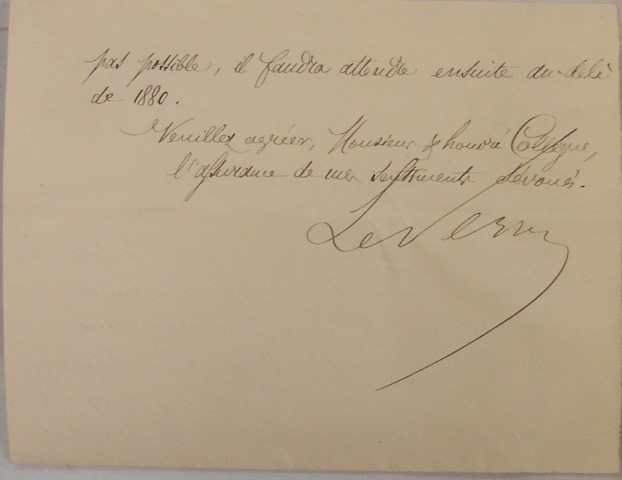 pas possible, il faudra attendre ensuite au-delà
de 1880.
Veuillez agréer, Monsieur & honoré Collègue,
l'assurance de mes sentiments dévoués.
Le Verrier